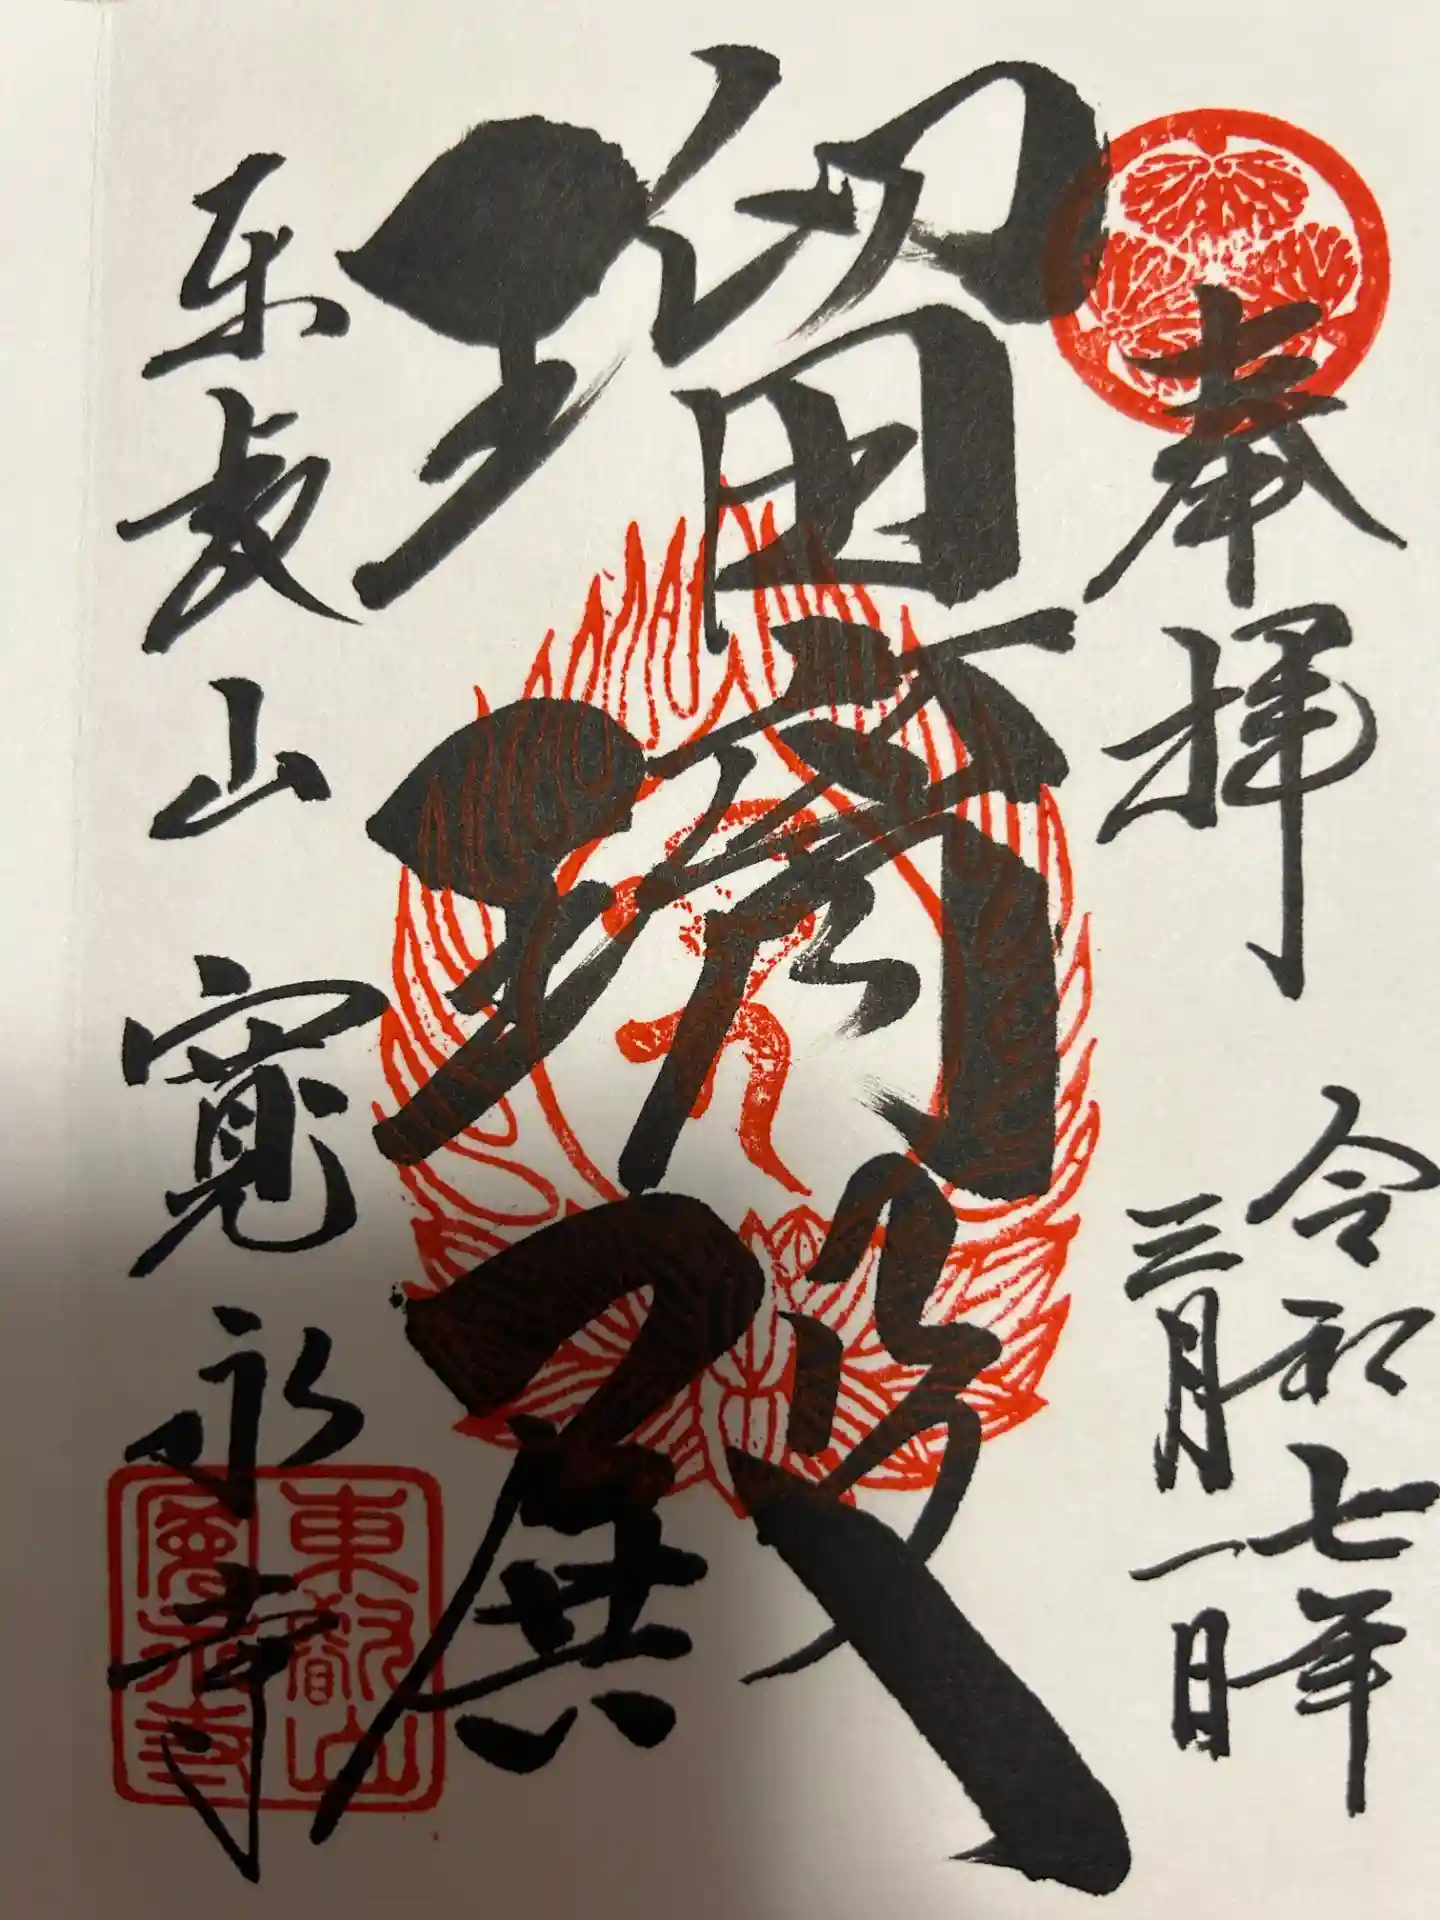 奉拝
令和七年
三月一日
瑠璃殿
東叡山 寛永寺
東叡山
寛永寺